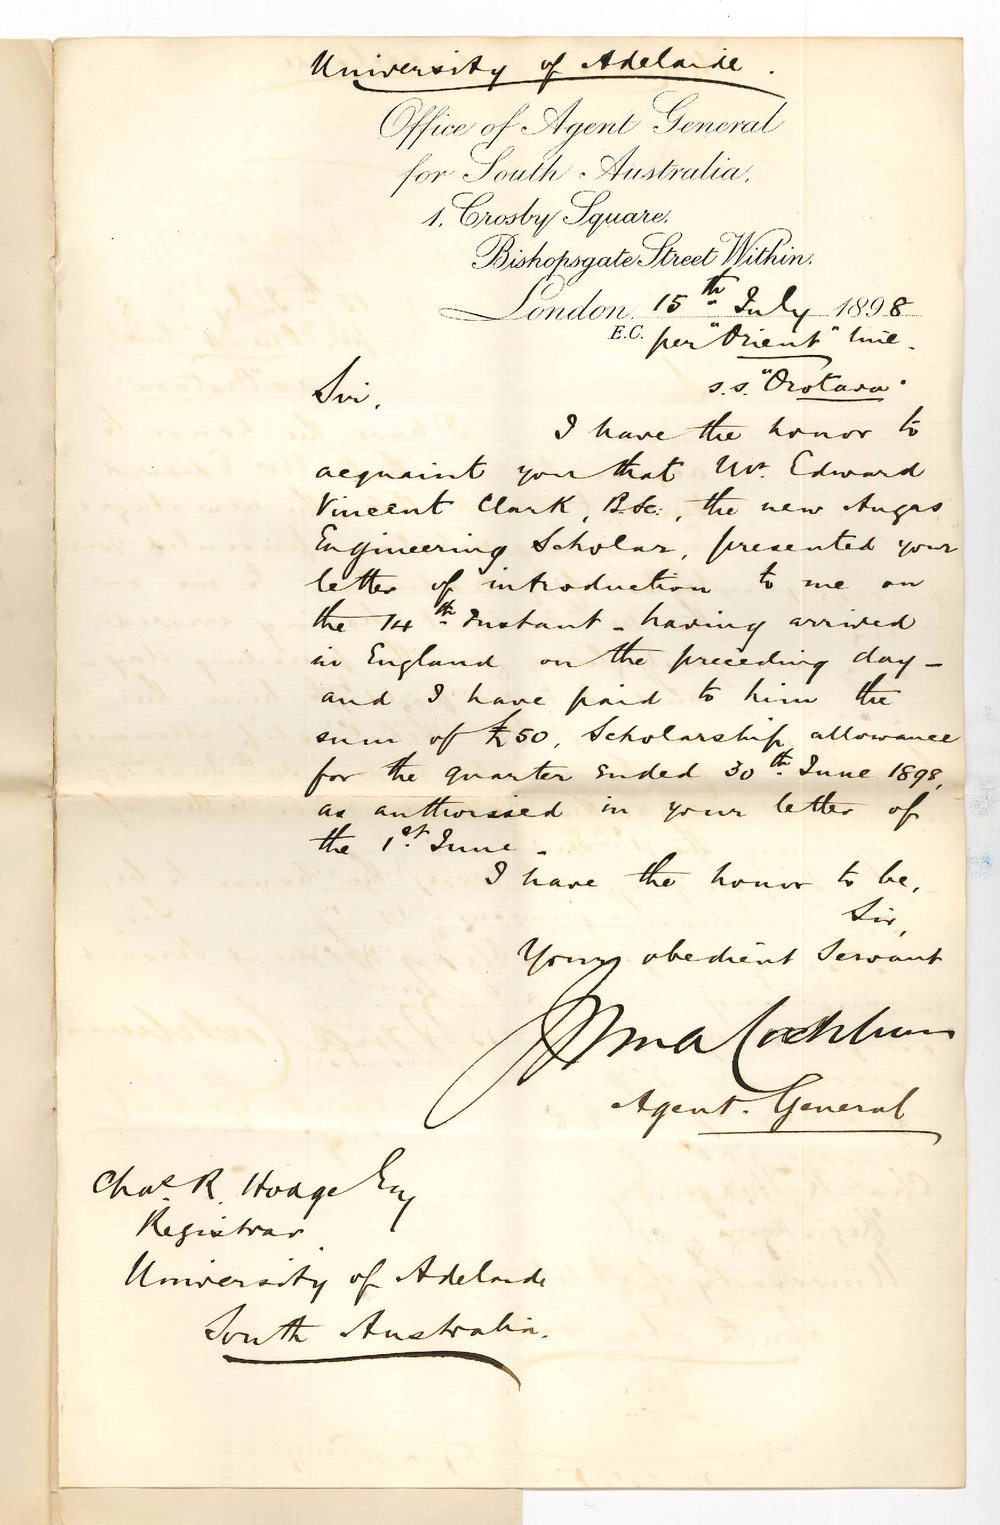 University of Adelaide.
Office of Agent General
for South Australia,
1, Crosby Square,
Bishopsgate Street Within.
London, 15th July 1898
E.C. per "Orient" line.
s.s. "Orotava"
Sir,
I have the honor to
acquaint you that Mr. Edward
Vincent Clark, B.Sc., the new Angas
Engineering Scholar, presented your
letter of introduction to me on
the 14th Instant - having arrived
in England on the preceding day -
and I have paid to him the
sum of £50, Scholarship allowance
for the quarter ended 30th June 1898,
as authorised in your letter of
the 1st June -
I have the honor to be,
Sir,
Your obedient Servant
Cockburn
Agent-General
Chas. R. Hodge Esq
Registrar
University of Adelaide
South Australia.